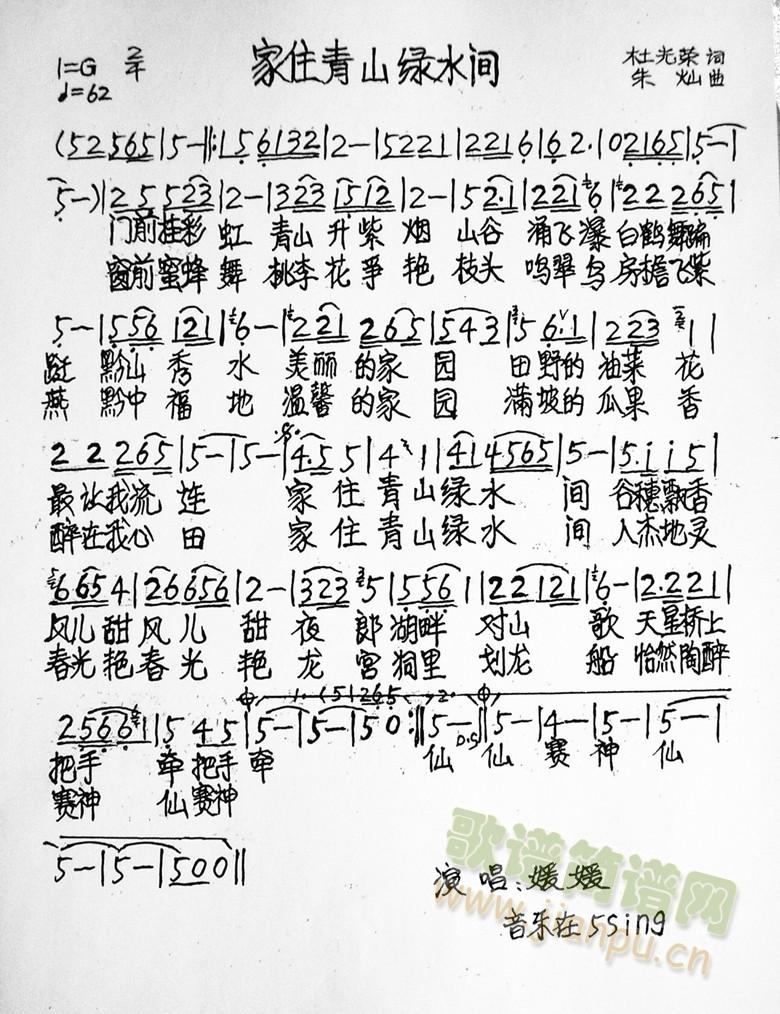 家住青山绿水间
1=G 2/4
杜光荣 词
♩=62
朱灿 曲
(5 2 5 6 5 | 5 - ‖: 1 5 6 1 3 2 | 2 - | 5 2 2 1 | 2 2 1 6 | 6 2 · | 0 2 1 6 5 | 5 - |
5 - ) | 2 5 5 2 3 | 2 - | 3 2 3 1 5 1 2 | 2 - | 5 2 · 1 | 2 2 1 6 | 2 2 2 6 5 |
门前挂彩 虹 青山 升 紫 烟 山谷 涌飞 瀑 白鹤舞蹁
窗前蜜蜂 舞 桃李 花 争 艳 枝头 鸣翠 鸟 房檐飞紫
5 - | 5 5 6 1 2 1 | 6 - | 2 2 1 2 6 5 | 5 4 3 | 5 6 · 1 | 2 2 3 1 |
跹 黔山 秀 水 美丽 的家 园 田 野的 油菜 花
燕 黔中 福 地 温馨 的家 园 满 坡的 瓜果 香
2 2 2 6 5 | 5 - | 5 - | 4 · 5 5 | 4 1 | 4 1 4 5 6 5 | 5 - | 5 · i i 5 |
最让我流 连 家 住 青 山 绿 水 间 谷穗飘香
醉在我心 田 家 住 青 山 绿 水 间 人杰地灵
6 6 5 4 | 2 6 6 5 6 | 2 - | 3 2 3 5 | 5 5 6 1 | 2 2 1 2 1 | 6 - | 2 · 2 2 1 |
风儿 甜 风 儿 甜 夜 郎 湖畔 对山 歌 天星桥上
春光 艳 春 光 艳 龙 宫 洞里 划龙 船 怡然陶醉
1. (5 1 2 6 5 2.
2 5 6 6 1 | 5 4 5 | 5 - | 5 - | 5 0 :‖ 5 - ‖ 5 - | 4 - | 5 - | 5 - |
D.S
把手 牵 把手 牵 仙 仙 赛 神 仙
赛神 仙 赛神
5 - | 5 - | 5 0 0 ‖
歌谱简谱网
演唱:媛媛
www.jianpu.cn
音乐在5sing